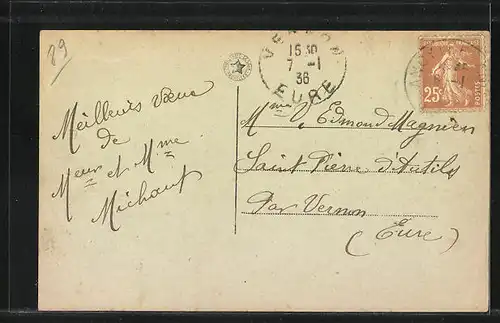 89
Meilleurs vœux
de
Meur et Mme
Michaut
VERNON
15 30
7 -1
36
EURE
25c
POSTES
Mme Ve Edmond Magnien
Saint Pierre d'Autils
Par Vernon
(Eure)